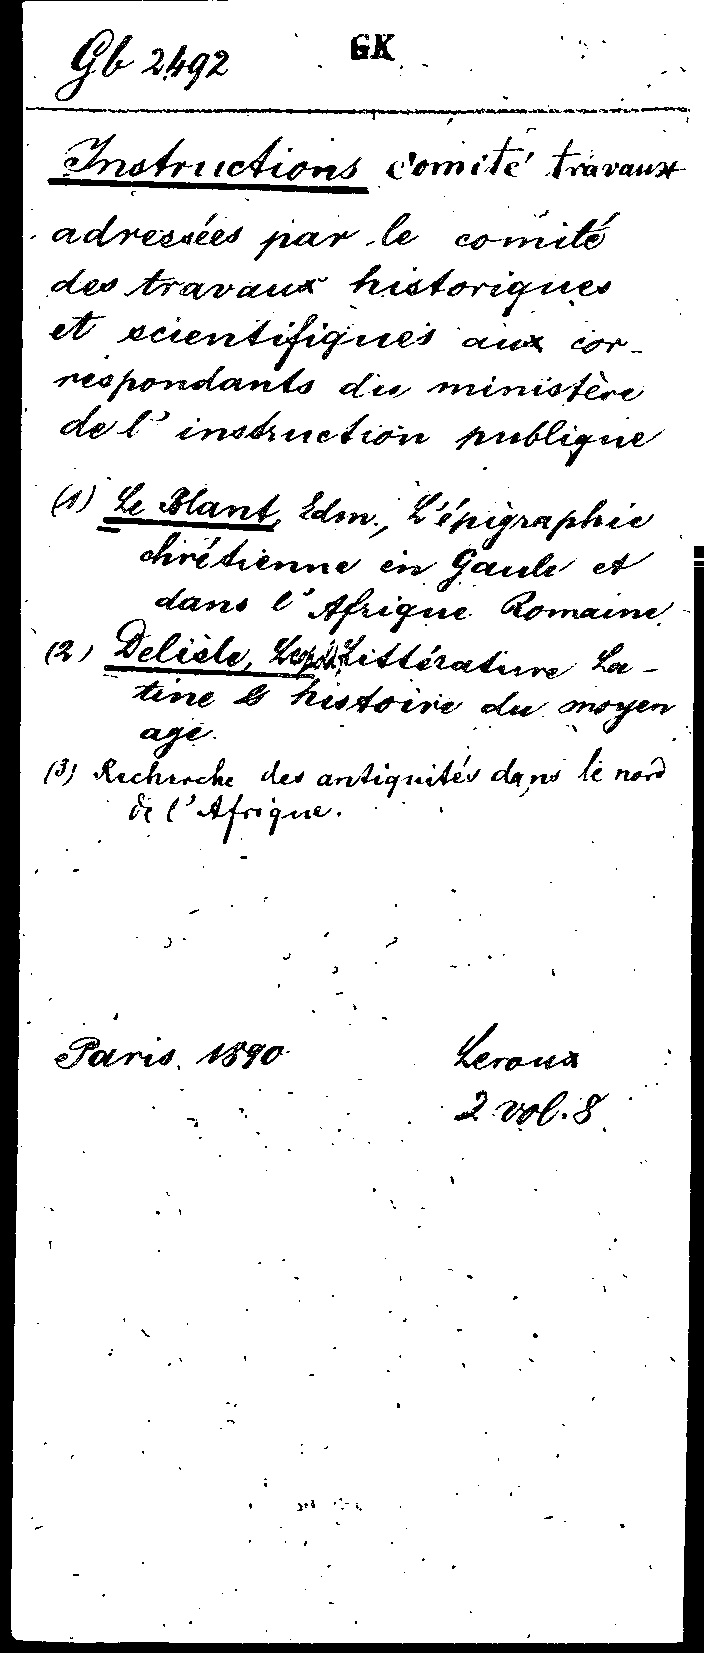 Gb 2492 GK
Instructions comité travaux
adressées par le comité
des travaux historiques
et scientifiques aux cor-
respondants du ministère
de l'instruction publique
(1) Le Blant, Edm., L'épigraphie
chrétienne en Gaule et
dans l'Afrique Romaine
(2) Delisle, Léopold, Littérature La-
tine & histoire du moyen
age.
(3) Recherche des antiquités dans le nord
de l'Afrique.
Paris. 1890 Leroux
2 vol. 8